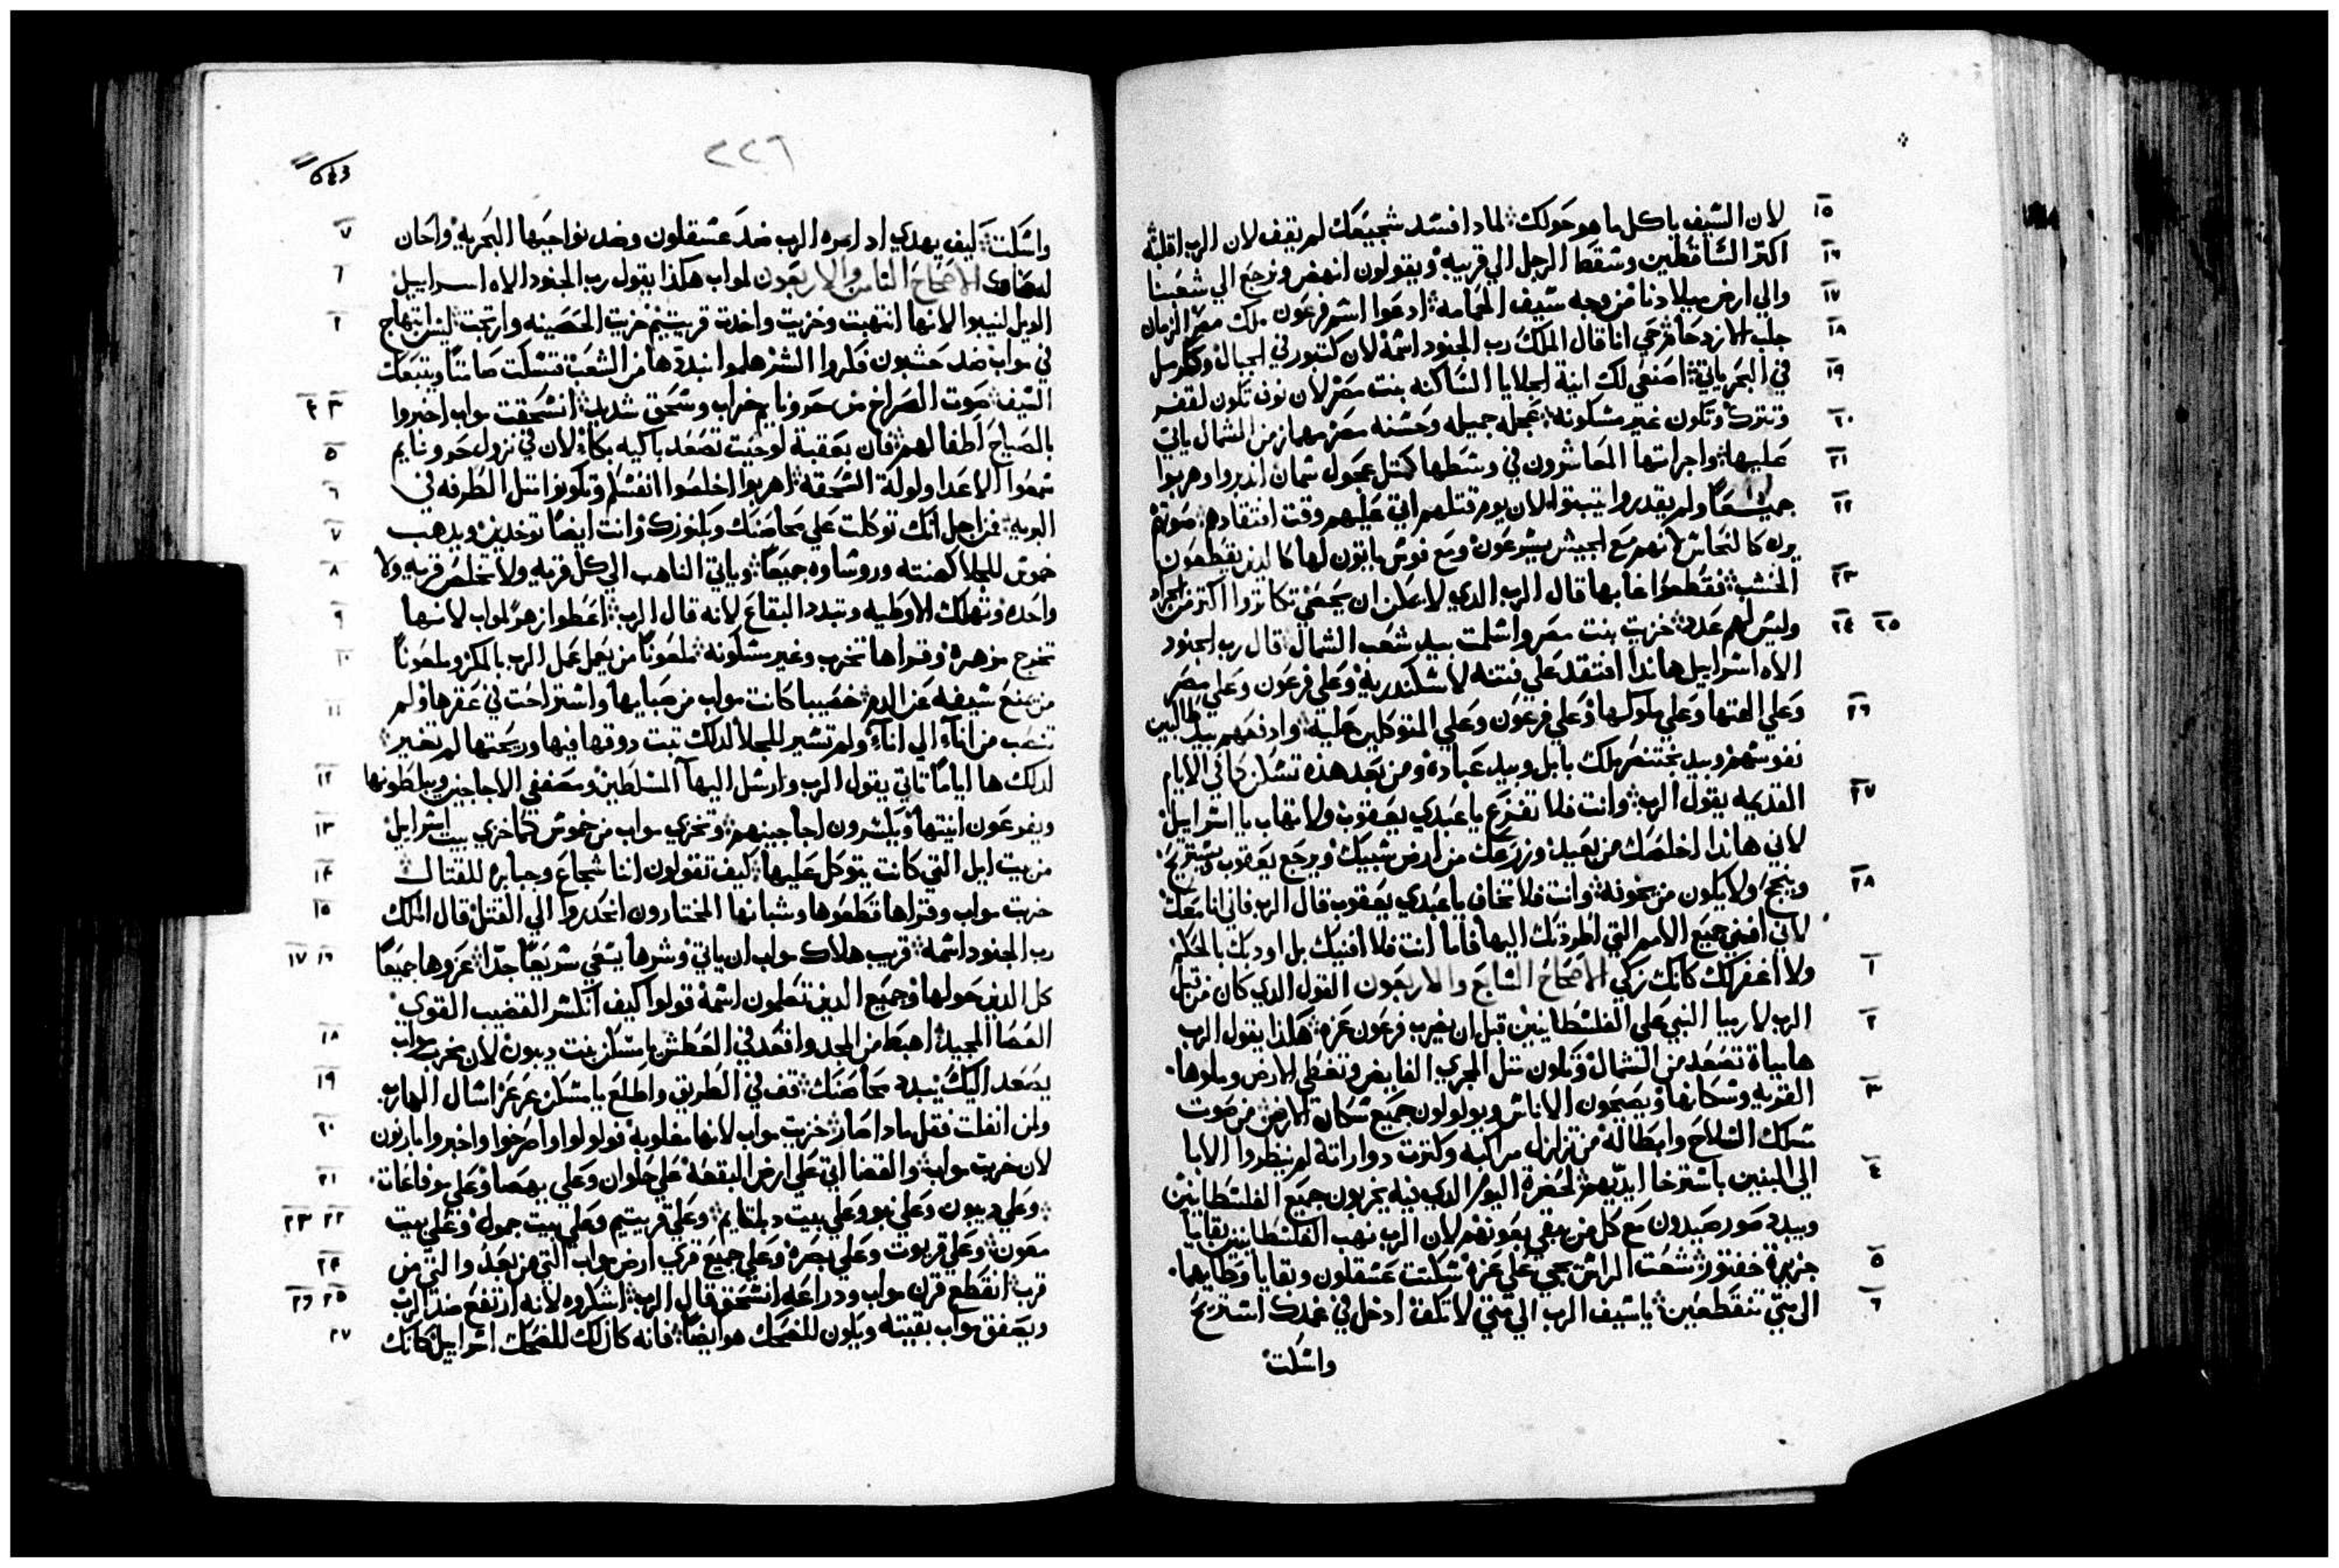 ١٥ لان السيف ياكل ما هو حولك لمادا فسد شجيعك لم يقف لان الرب اقلبه
١٦ اكتر الساقطين وسقط الرجل الي قريبه ويقولون انهض ونرجع الي شعبنا
١٧ والي ارض ميلادنا من وجه سيف الحمامه ادعوا اسم فرعون ملك مصر الزمان
١٨ جلب الازدحام حي انا قال الملك رب الجنود اسمه لان كتبور في الجبال وككرمل
١٩ في البحر ياتي اصنعي لك انية الجلايا الساكنه بنت مصر لان نوف تكون لقفر
٢٠ وتترك وتكون غير مسكونه عجله جميله وحسنه مصر مهماز من الشمال ياتي
٢١ عليها واجراتها المعاشرون في وسطها كمتل عجول سمان اندبروا وهربوا
٢٢ جميعا ولم يقدروا يتبتوا لان يوم قتلهم اتي عليهم وقت افتقادهم صوتها
يرن كالنحاس لانهم مع الجيش يسرعون ومع فوس ياتون لها كالدين يقطعون
٢٣ الخشب فقطعوا غابها قال الرب الدي لا يمكن ان يحصي تكاتروا اكتر من الجراد
٢٤ ٢٥ وليس لهم عدد خزيت بنت مصر واسلمت بيد شعب الشمال قال رب الجنود
الاه اسراييل هاندا افتقد علي فتنه لاسكندريه وعلي فرعون وعلي مصر
٢٦ وعلي الهتها وعلي ملوكها وعلي فرعون وعلي المتوكلين عليه وادفعهم بيد طالبين
نفوسهم وبيد بختنصر ملك بابل وبيد عباده ومن بعد هده تسكن كما في الايام
٢٧ القديمه يقول الرب وانت فلا تفزع يا عبدي يعقوب ولا تهاب يا اسراييل
لاني هاندا اخلصك من بعيد وزرعك من ارض سبيك ويرجع يعقوب ويستريح
٢٨ وينجح ولا يكون من يخوفه وانت فلا تخاف يا عبدي يعقوب قال الرب فاني انا معك
لاني افني جميع الامم التي اطردتك اليها فاما انت فلا افنيك بل اودبك بالحكم
١ ولا اغفر لك كانك زكي الاصحاح السابع والاربعون القول الدي كان من قبل
٢ الرب لارميا النبي علي الفلسطانيين قبل ان يضرب فرعون غزه هكدا يقول الرب
ها مياة تصعد من الشمال وتكون متل المجري الفايض وتغطي الارض وملوها
٣ القريه وسكانها ويصيحون الاناس ويولولون جميع سكان الارض من صوت
سلك السلاح وابطاله من تزلزل مراكبه وكترت دواراته لم ينظروا الابا
٤ الي البنين باسترخا ايديهم لحضرة اليوم الدي فيه يخربون جميع الفلسطانيين
ويبدد صور صيدون مع كل من بقي بعونهم لان الرب نهب الفلسطانيين بقايا
٥ جزيرة خفتور شعت الراس يجي علي غزه سكتت عسقلون وبقايا وطايهما
٦ الي متي تنقطعين يا سيف الرب الي متي لا تكف ادخل في غمدك استريح
واسكت
٢٢٦
643
٧ واسكت كيف يهدي اد امره الرب ضد عسقلون وضد نواحيها البحريه واحان
١ الاصحاح التامن والاربعون لمواب هكدا يقول رب الجنود الاه اسراييل
٢ الويل لنيبوا لانها انتهبت وخزيت واخدت قريتيم خزيت الحصينه وارتجت ليس ابتهاج
في مواب ضد حشبون فكروا الشر هلموا نبددها من الشعب فتسكت صامتا ويتبعك
٣ ٤ السيف صوت الصراخ من حورونايم خراب وسحق شديد انسحقت مواب اخبروا
٥ بالصياح اطفالهم فان بعقبة لوحيت تصعد باكيه بكاء لان في نزول حورونايم
٦ سمعوا الاعدا ولولة السحقه اهربوا اخلصوا انفسكم وتكونوا متل الطرفه في
٧ البريه فمن اجل انك توكلت علي محاصنك وكنوزك وانت ايضا توخدين ويدهب
٨ خموش للجلا كهنته وروساوه جميعا وياتي الناهب الي كل قريه ولا تخلص قريه ولا
٩ واحده وتهلك الاوطيه وتبدد البقاع لانه قال الرب اعطوا زهر لمواب لانها
١٠ تخرج مزهره وقراها تخرب وغير مسكونه ملعونا من يعمل عمل الرب بالمكر وملعونا
١١ من يمنع سيفه عن الدم خصيبا كانت مواب من صبايها واستراحت في عقرها ولم
تنصب من اناء الي اناء ولم تسير للجلا لدلك تبت دوقها فيها وريحتها لم تغير
١٢ لدلك ها اياما تاتي يقول الرب وارسل اليها المسلطين ومصففي الاجاجين ويبلطونها
١٣ ويفرغون انيتها ويكسرون اجاجينهم وتخزي مواب من خموش كما خزي بيت اسراييل
١٤ من بيت ايل التي كانت يتوكل عليها كيف تقولون اننا شجاع وجبابره للقتال
١٥ خربت مواب وقراها قطعوها وشبانها المختارون انحدروا الي القتل قال الملك
١٦ ١٧ رب الجنود اسمه قريب هلاك مواب ان ياتي وشرها يسعي سريعا جدا عزوها جميعا
كل الدين حولها وجميع الدين تعلمون اسمه قولوا كيف انكسر القضيب القوي
١٨ العصا المجيد اهبط من المجد واقعد في العطش يا مسكن بنت ديبون لان مخرب مواب
١٩ يصعد اليك نيبدد محاصنك قف في الطريق واطلع يا مسكن عرعر اسال الهارب
٢٠ ولمن انفلت فقل مادا صار خزيت مواب لانها مغلوبه فولولوا واصرخوا واخبروا بارنون
٢١ لان خربت مواب والقضا اتي علي ارض البقعه علي حلوان وعلي يهصا وعلي موفاغات
٢٢ ٢٣ وعلي ديبون وعلي نبو وعلي بيت دبلتايم وعلي قريتيم وعلي بيت جمول وعلي بيت
٢٤ معون وعلي قريوت وعلي بصره وعلي جميع قري ارض مواب التي من بعد والتي من
٢٥ ٢٦ قرب انقطع قرن مواب ودراعه انسحق قال الرب اسكروه لانه ارتفع ضد الرب
٢٧ ويصفق مواب بقيته ويكون للضحك هو ايضا فانه كان لك للضحك اسراييل كانك